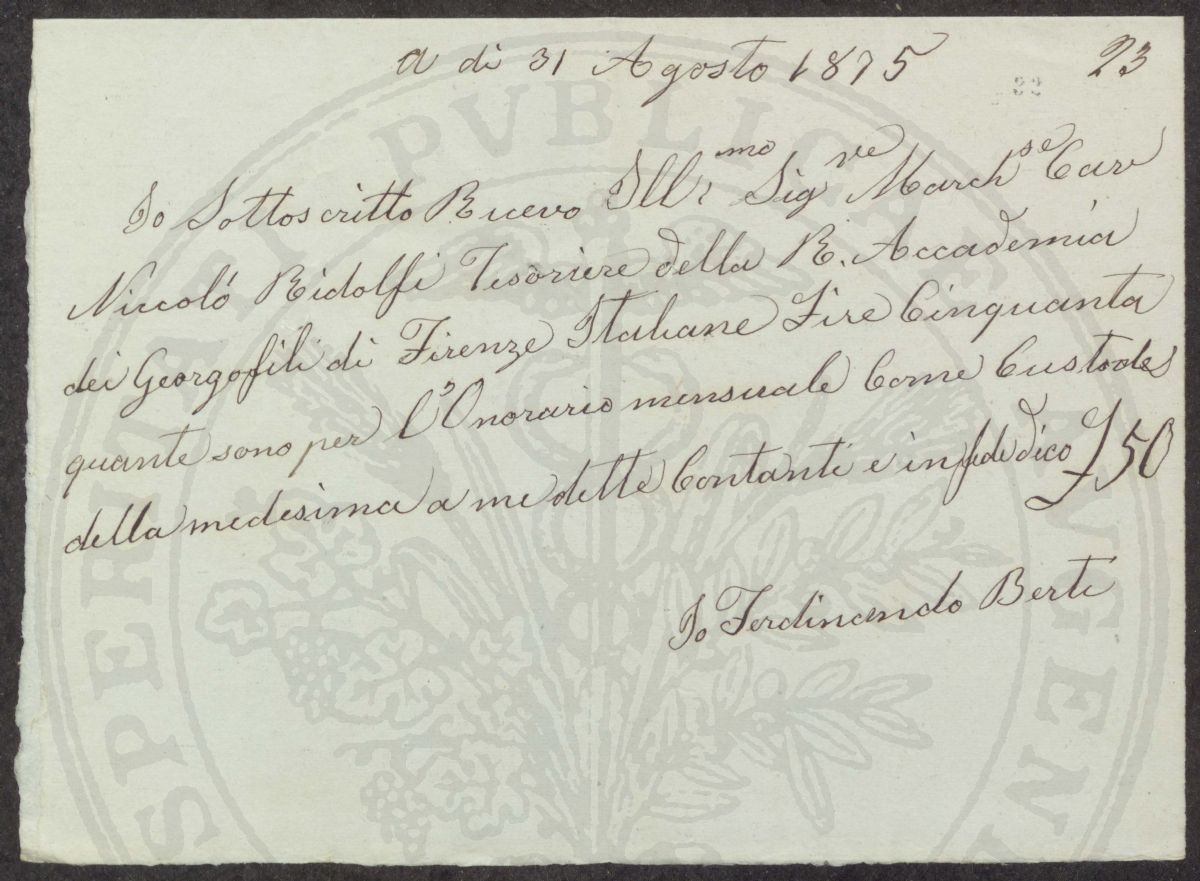 a di 31 Agosto 1875 23
22
Io Sottoscritto Ricevo Ill.mo Sig.re March.se Cav
Niccoló Ridolfi Tesoriere della R. Accademia
dei Georgofili di Firenze Italiane Lire Cinquanta
quante sono per l'Onorario mensuale Come Custode
della medesima a me dette Contanti e in fede dico £ 50
Io Ferdinando Berti
PROSPERITATI PVBLICAE AVGENDAE